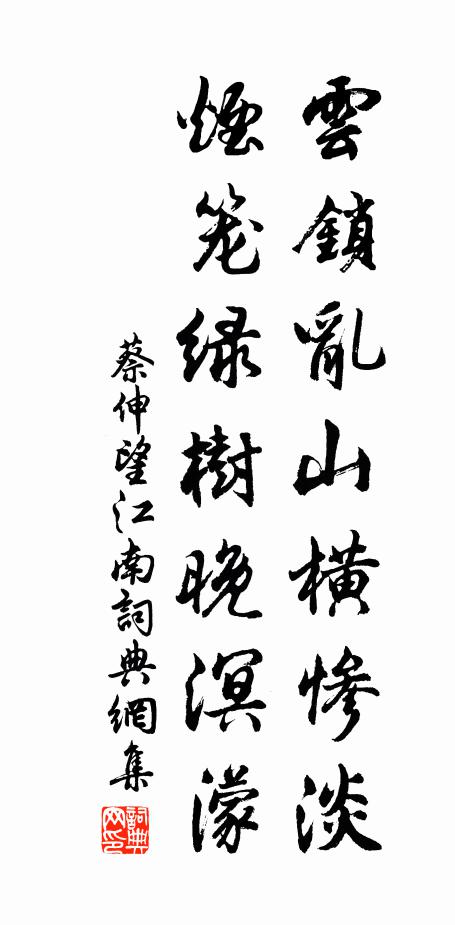 雲鎖亂山橫慘淡
煙笼绿樹晚溟濛
蔡伸望江南詞典網集
詞典网印